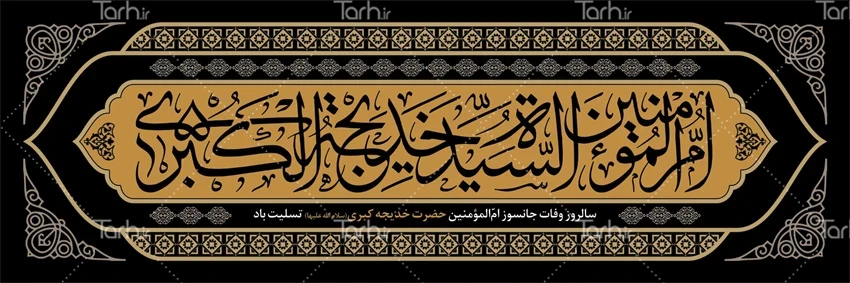 Tarh.ir Tarh.ir Tarh.ir Tarh.ir
أمّ المؤمنین السّیّدة خدیجة الکبری
سالروز وفات جانسوز امّ‌المؤمنین حضرت خدیجه کبری (سلام الله علیها) تسلیت باد
Tarh.ir Tarh.ir Tarh.ir Tarh.ir